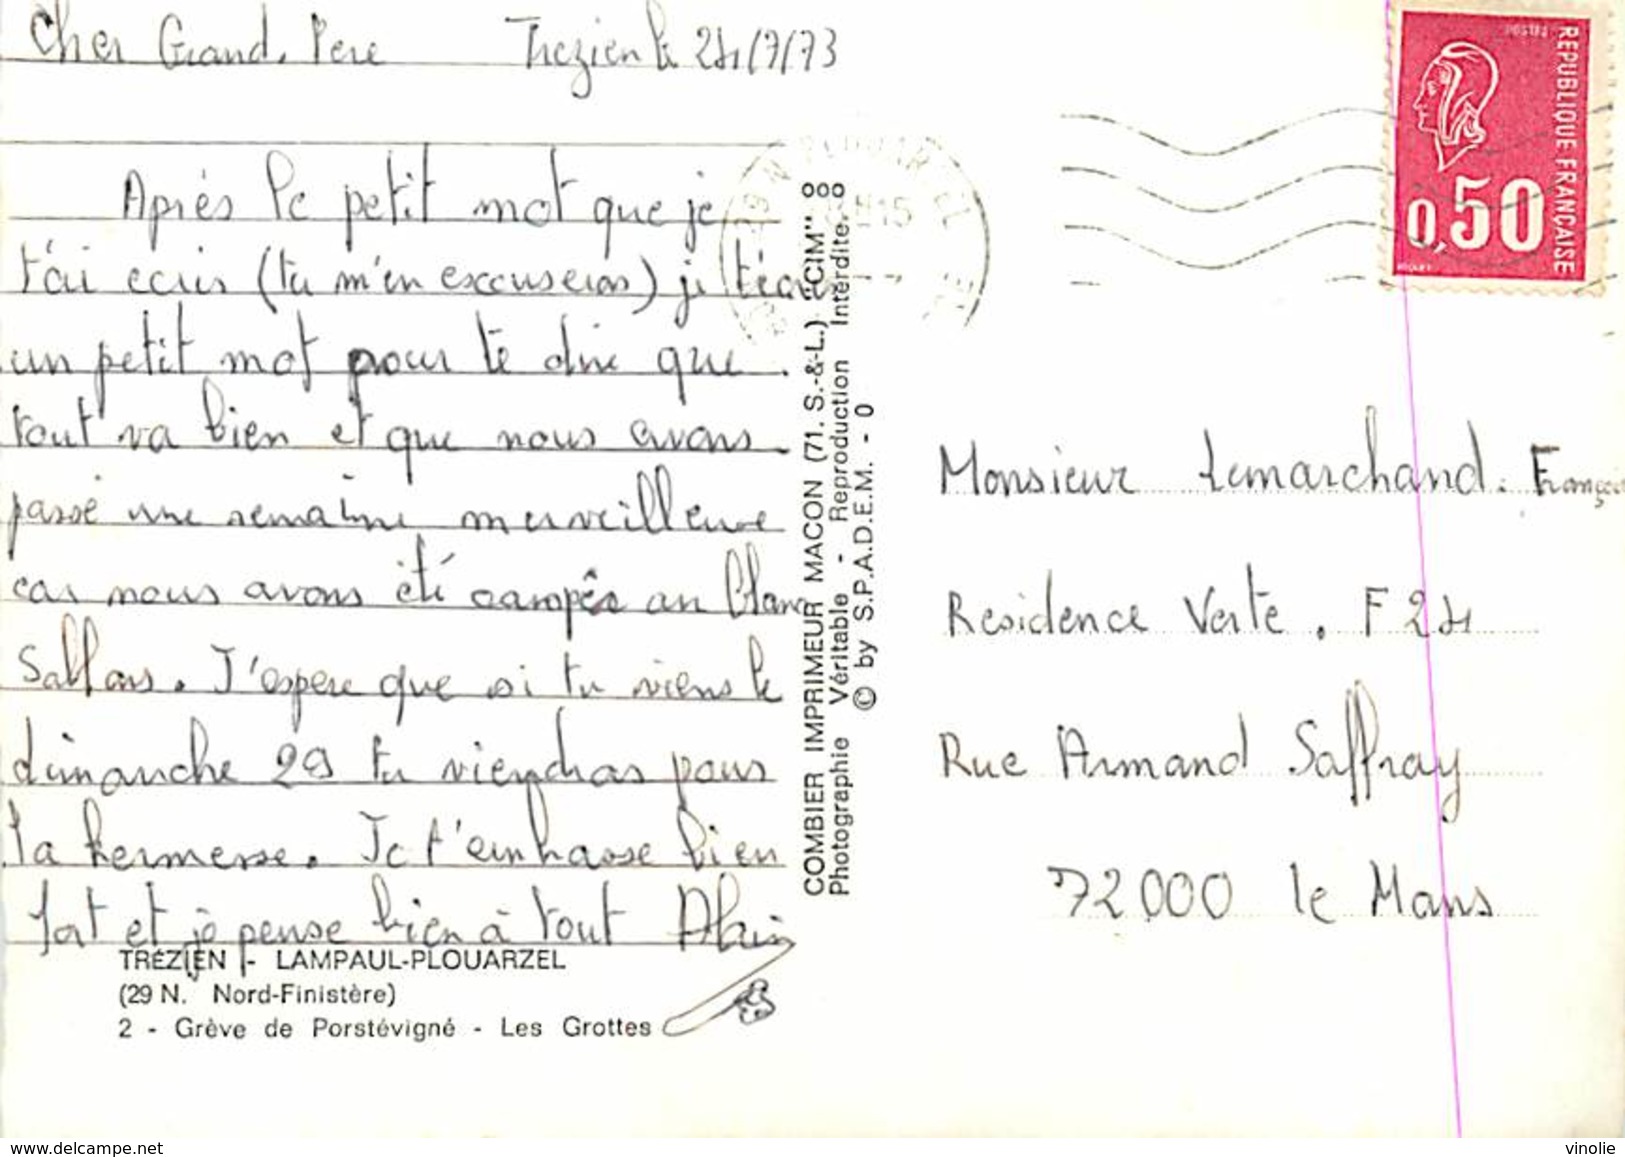 Cher Grand. Pere Trezien le 24/7/73
Après le petit mot que je
t'ai ecris (tu m'en excuseras) je t'écris
un petit mot pour te dire que.
tout va bien et que nous avons.
passé une semaine merveilleuse
car nous avons été campés au Blanc
Sablons. J'espere que si tu viens le
dimanche 29 tu viendras pour
la kermesse. Je t'embrasse bien
fort et je pense bien à tout Alain
TRÉZIEN - LAMPAUL-PLOUARZEL
(29 N. Nord-Finistère)
2 - Grève de Porstévigné - Les Grottes
COMBIER IMPRIMEUR MACON (71. S.-&-L.) "CIM"
Photographie Véritable - Reproduction Interdite.
© by S.P.A.D.E.M. - 0
REPUBLIQUE FRANÇAISE
POSTES
0,50
Monsieur Lemarchand. François
Residence Verte. F 24
Rue Armand Saffray
72000 le Mans
www.delcampe.net
vinolie